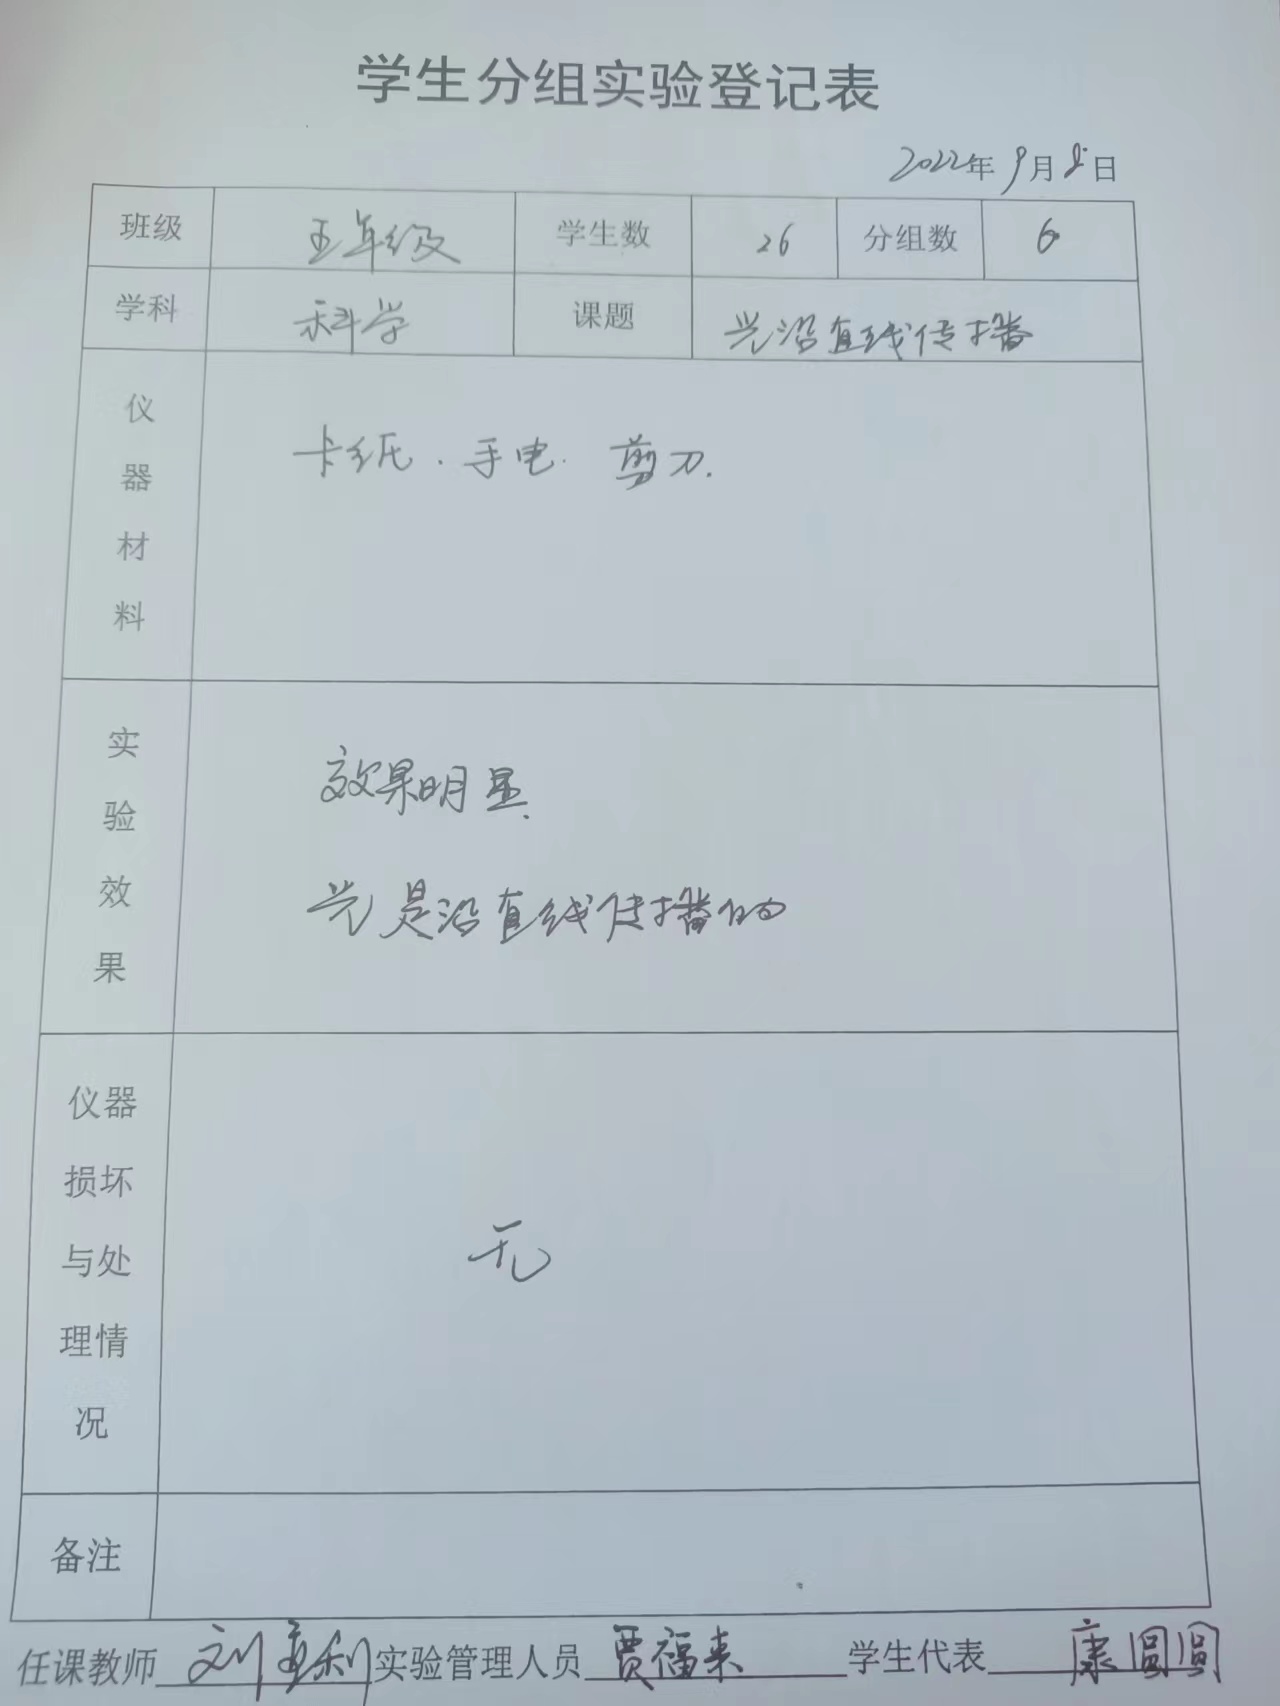 学生分组实验登记表
2022年9月8日
班级 五年级 学生数 26 分组数 6
学科 科学 课题 光沿直线传播
仪器材料 卡纸、手电、剪刀.
实验效果 效果明显.
光是沿直线传播的
仪器损坏与处理情况 无
备注
任课教师 刘孟利 实验管理人员 贾福来 学生代表 康圆圆